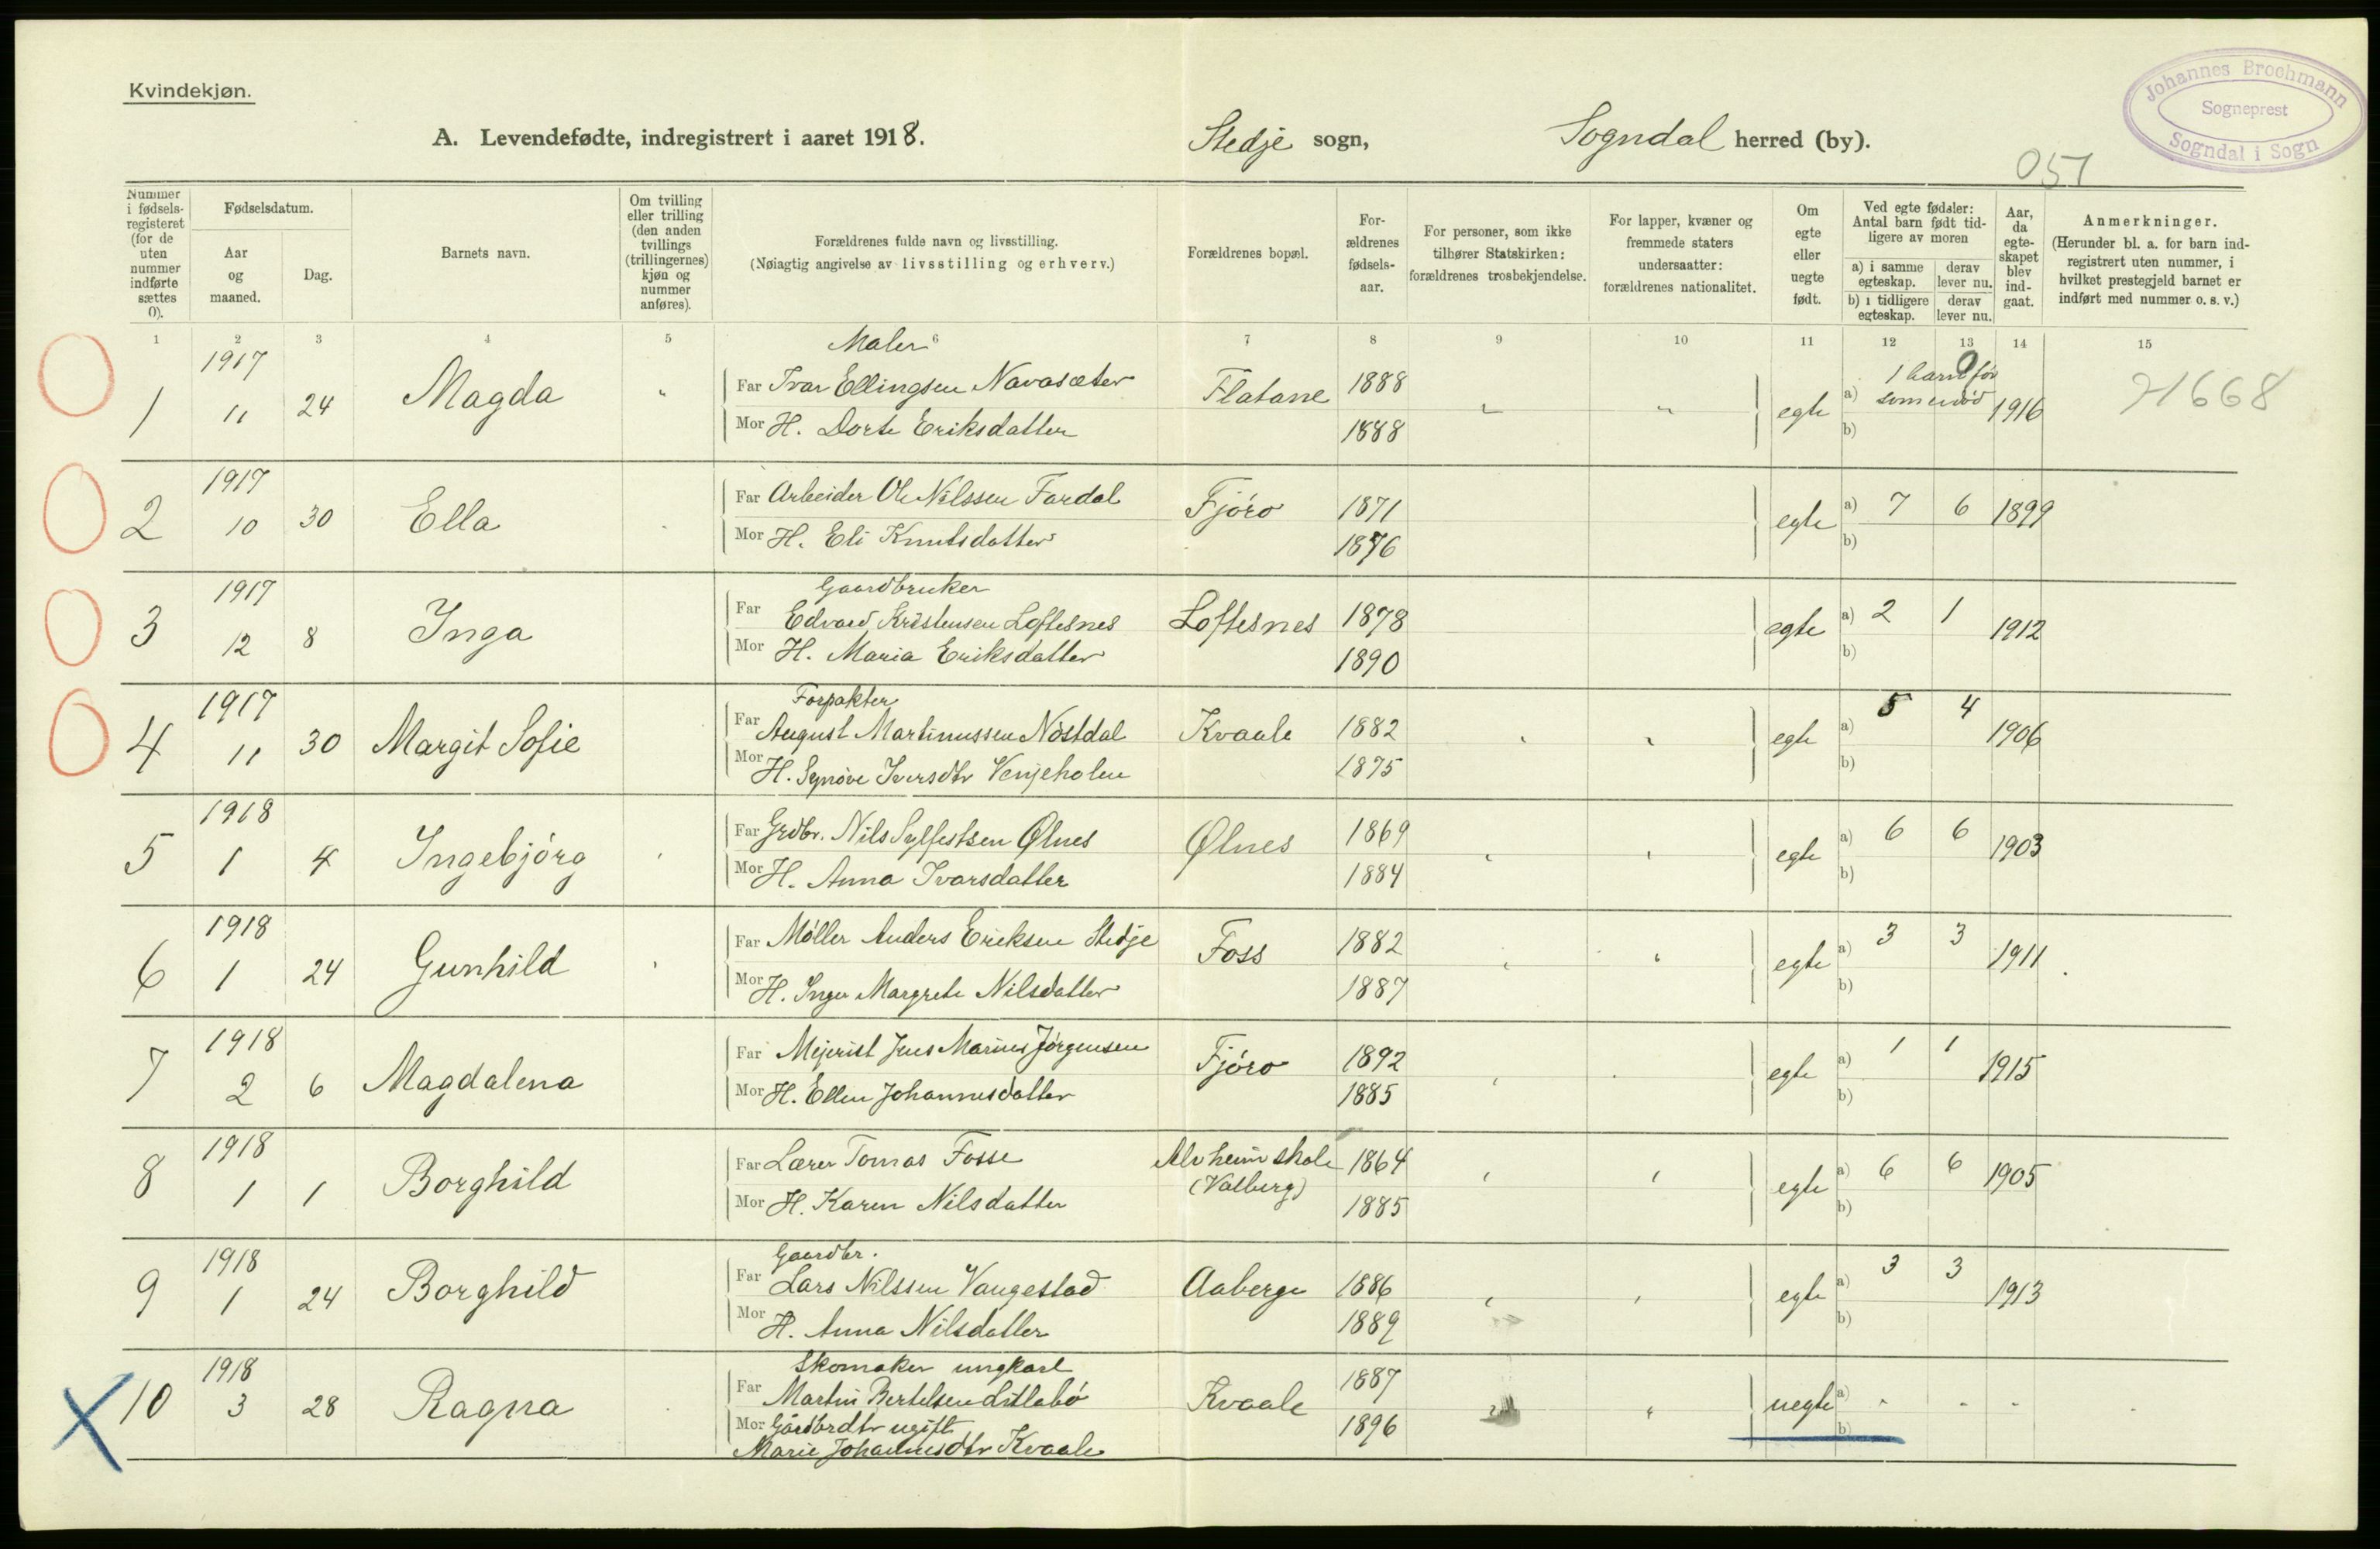 Kvindekjøn.
A. Levendefødte, indregistrert i aaret 1918.
Stedje sogn,
Sogndal herred (by).
Johannes Brochmann
Sogneprest
Sogndal i Sogn
051
Nummer i fødselsregisteret (for de uten nummer indførte sættes 0).
Fødselsdatum.
Aar og maaned.
Dag.
Barnets navn.
Om tvilling eller trilling (den anden tvillings (trillingernes) kjøn og nummer anføres).
Forældrenes fulde navn og livsstilling.
(Nøiagtig angivelse av livsstilling og erhverv.)
Forældrenes bopæl.
For-ældrenes fødsels-aar.
For personer, som ikke tilhører Statskirken: forældrenes trosbekjendelse.
For lapper, kvæner og fremmede staters undersaatter: forældrenes nationalitet.
Om egte eller uegte født.
Ved egte fødsler: Antal barn født tidligere av moren
a) i samme egteskap.
derav lever nu.
b) i tidligere egteskap.
derav lever nu.
Aar, da egteskapet blev indgaat.
Anmerkninger.
(Herunder bl. a. for barn indregistrert uten nummer, i hvilket prestegjeld barnet er indført med nummer o. s. v.)
1 2 3 4 5 6 7 8 9 10 11 12 13 14 15
1 1917 11 24 Magda "
Maler
Far Ivar Ellingsen Navasæter
Mor H. Dorte Eriksdatter
Flatane 1888 1888 " " egte a) 1 barn før som er død b) 0 1916
71668
2 1917 10 30 Ella
Far Arbeider Ole Nilssen Fardal
Mor H. Eli Knutsdatter
Fjóro 1871 1876 egte a) 7 6 b) 1899
3 1917 12 8 Inga
Gaardbruker
Far Edvard Kristensen Loftesnes
Mor H. Maria Eriksdatter
Loftesnes 1878 1890 egte a) 2 1 b) 1912
4 1917 11 30 Margit Sofie
Forpakter
Far August Martinussen Nóstdal
Mor H. Synóve Iversdtr Venjeholen
Kvaale 1882 1875 egte a) 5 4 b) 1906
5 1918 1 4 Ingebjórg
Far Grdbr. Nils Sylfestsen Ølnes
Mor H. Anna Ivarsdatter
Ølnes 1869 1884 egte a) 6 6 b) 1903
6 1918 1 24 Gunhild
Far Móller Anders Eriksen Stedje
Mor H. Inga Margrete Nilsdatter
Foss 1882 1887 egte a) 3 3 b) 1911
7 1918 2 6 Magdalena
Far Mejerist Jens Marius Jórgensen
Mor H. Ellen Johannesdatter
Fjóro 1892 1885 egte a) 1 1 b) 1915
8 1918 1 1 Borghild
Far Lærer Tomas Fosse
Mor H. Karen Nilsdatter
Alvheim skole (Valberg) 1864 1885 egte a) 6 6 b) 1905
9 1918 1 24 Borghild
Gaardbr.
Far Lars Nilssen Vangestad
Mor H. Anna Nilsdatter
Aaberge 1886 1889 egte a) 3 3 b) 1913
10 1918 3 28 Ragna
Skomaker ungkarl
Far Martin Bertelsen Litlabó
Mor Gårdbrdtr ugift
Marie Johannesdtr Kvaale
Kvaale 1887 1896 uegte a) b)